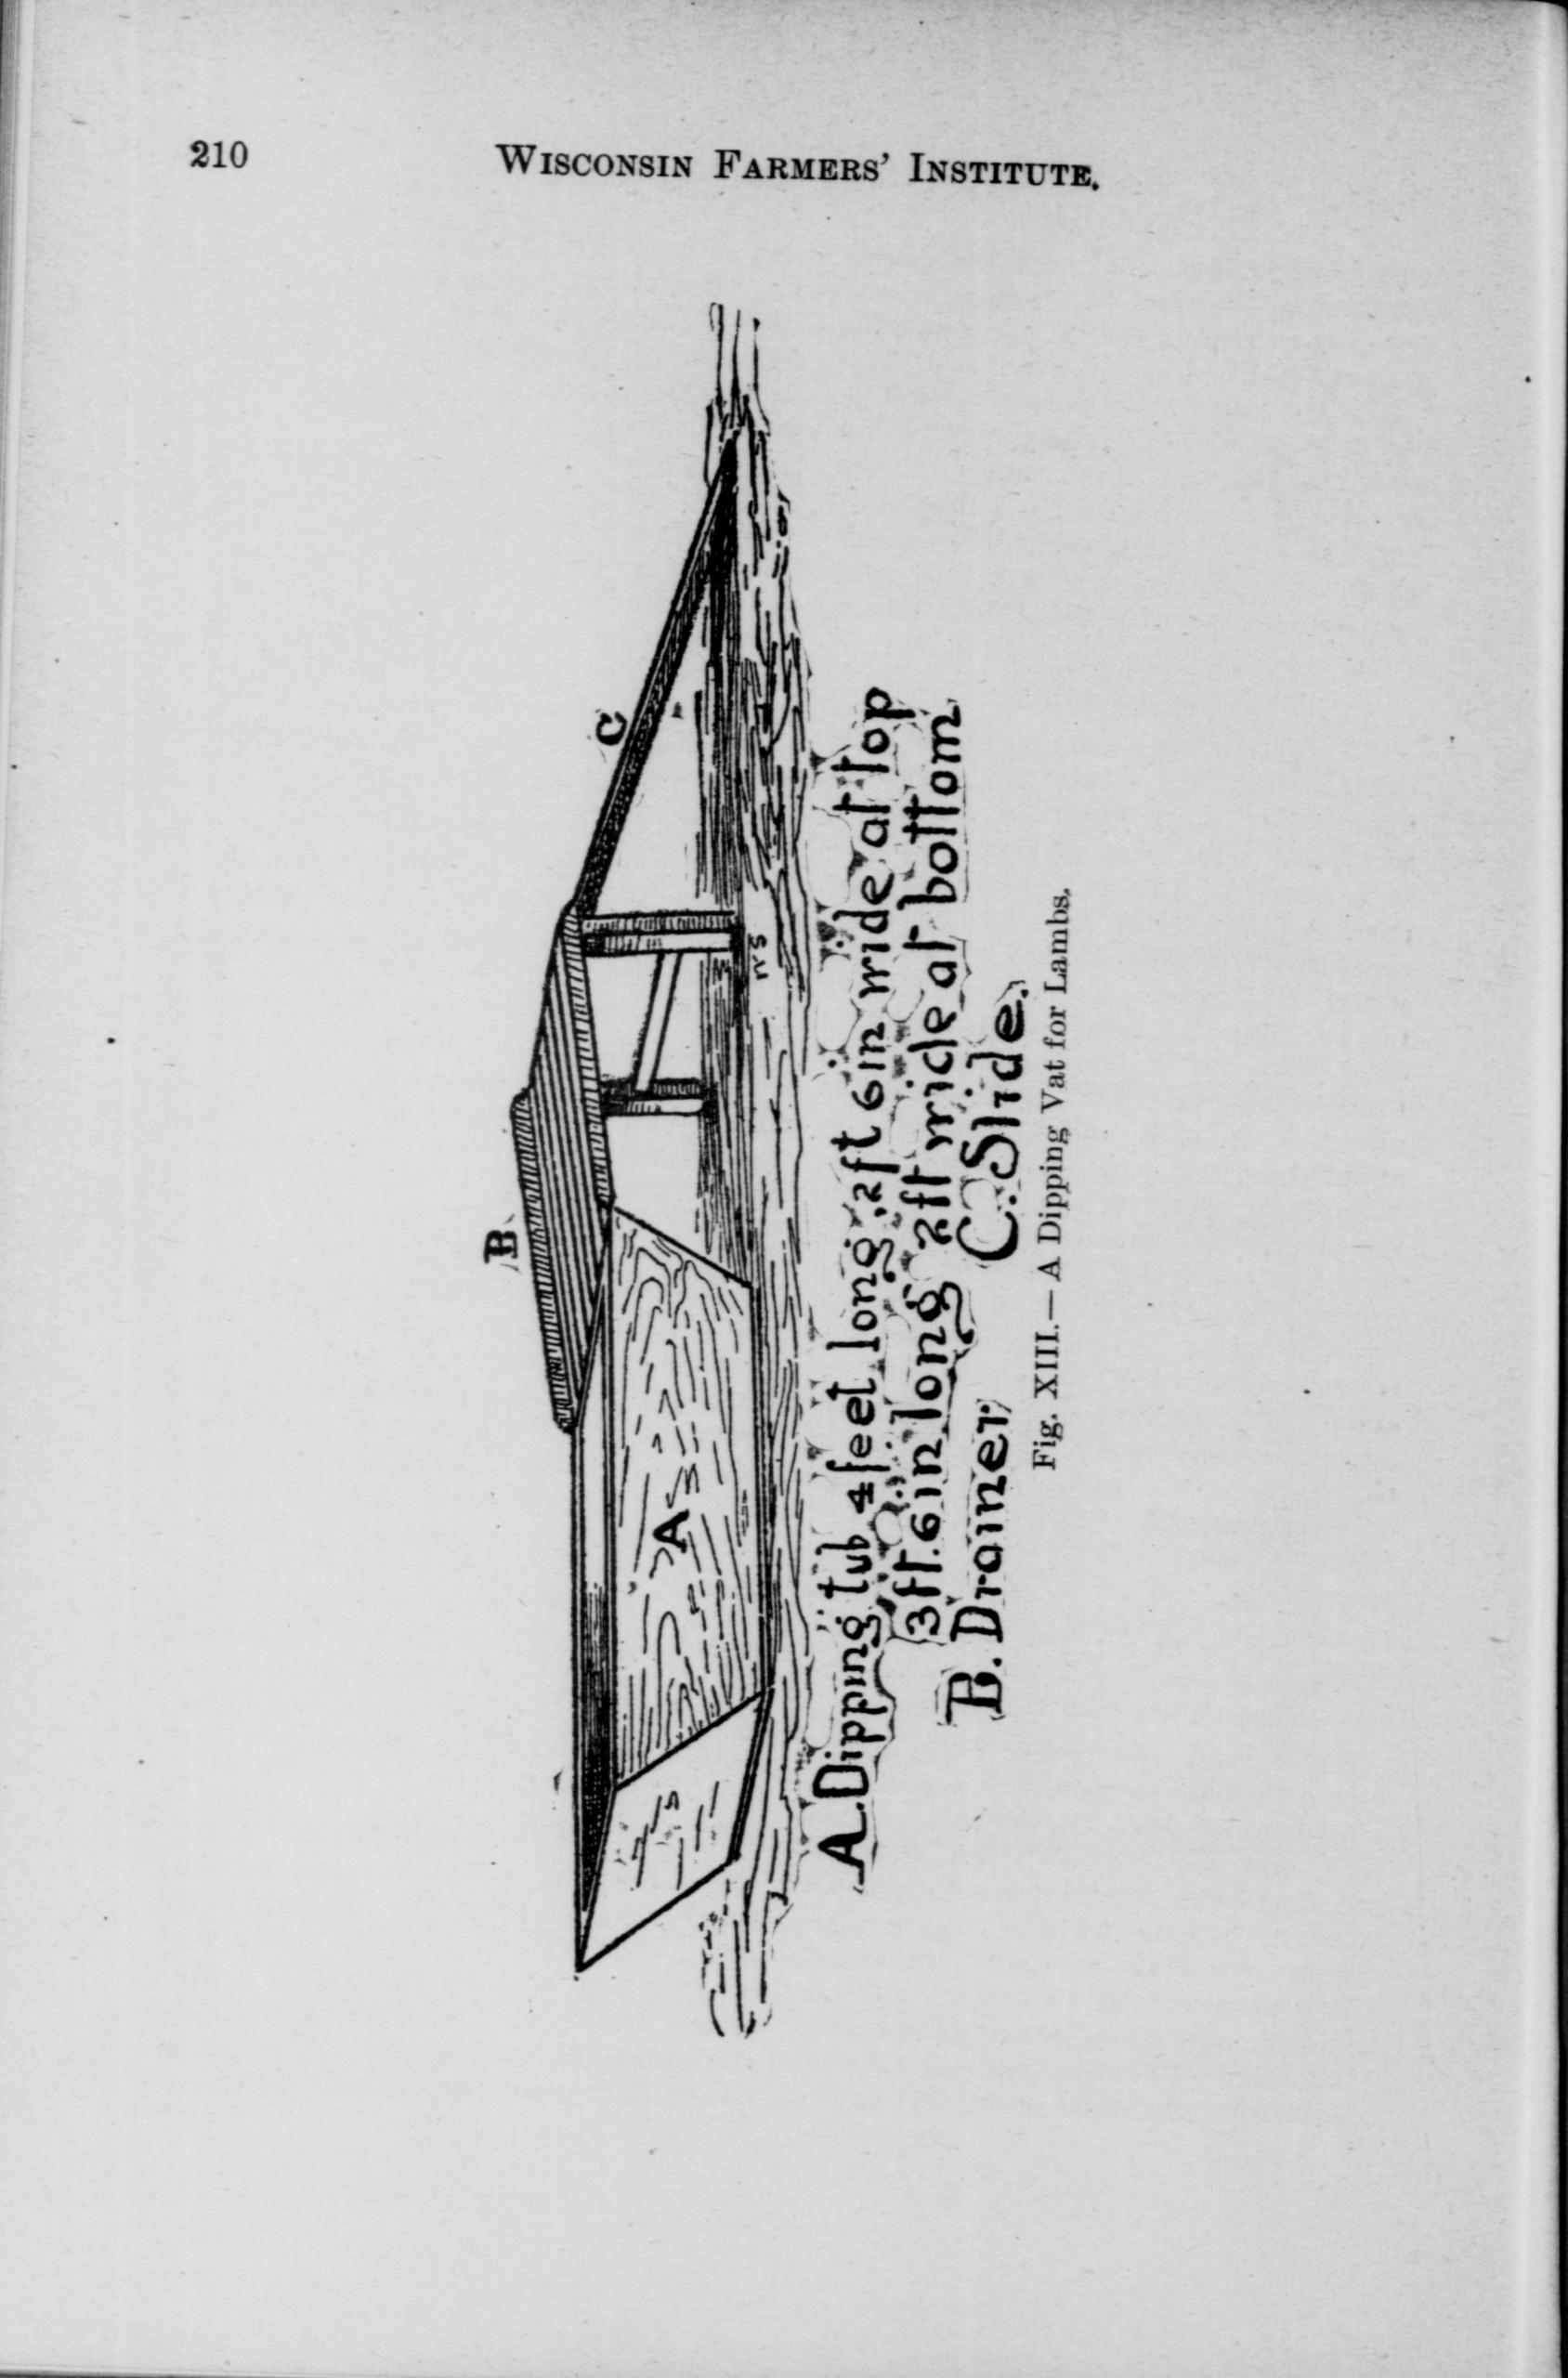 210
WISCONSIN FARMERS' INSTITUTE.
B
C
A
A. Dipping tub 4 feet long, 2ft 6in wide at top
3ft. 6in long 2ft wide at bottom
B. Drainer, C. Slide.
Fig. XIII.— A Dipping Vat for Lambs.